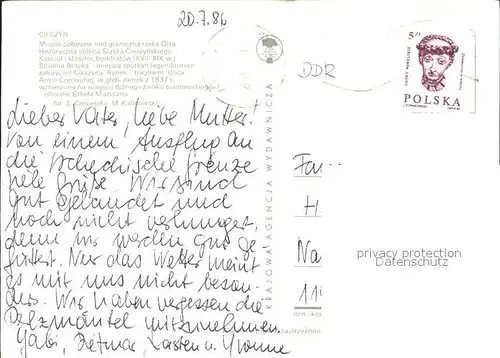 20.7.86
CIESZYN
Miasto położone nad graniczną rzeką Olzą
Historyczna stolica Śląska Cieszyńskiego
Kościół i klasztor Bonifratów (XVII-XIX w.)
Studnia Braćka - miejsce spotkań legendarnych
założycieli Cieszyna. Rynek - fragment. Ulica
Armii Czerwonej, w głębi zamek z 1837 r.
wzniesiony na miejscu dolnego zamku piastowskiego -
obecnie Szkoła Muzyczna
fot. S. M. Kalinowski
DDR
5 ZŁ
POLSKA
KRAJOWA AGENCJA WYDAWNICZA
Lieber Vater, liebe Mutter!
Von einem Ausflug an
die tschechische Grenze
viele Grüße. Wir sind
gut gelandet und
noch nicht verhungert,
denn wir werden gut ge-
füttert. Nur das Wetter meint
es mit uns nicht beson-
ders. Wir haben vergessen die
Pelzmäntel mitzunehmen.
Gabi, Dietmar, Karsten u. Yvonne
Fa
H
Na
11
privacy protection
Datenschutz